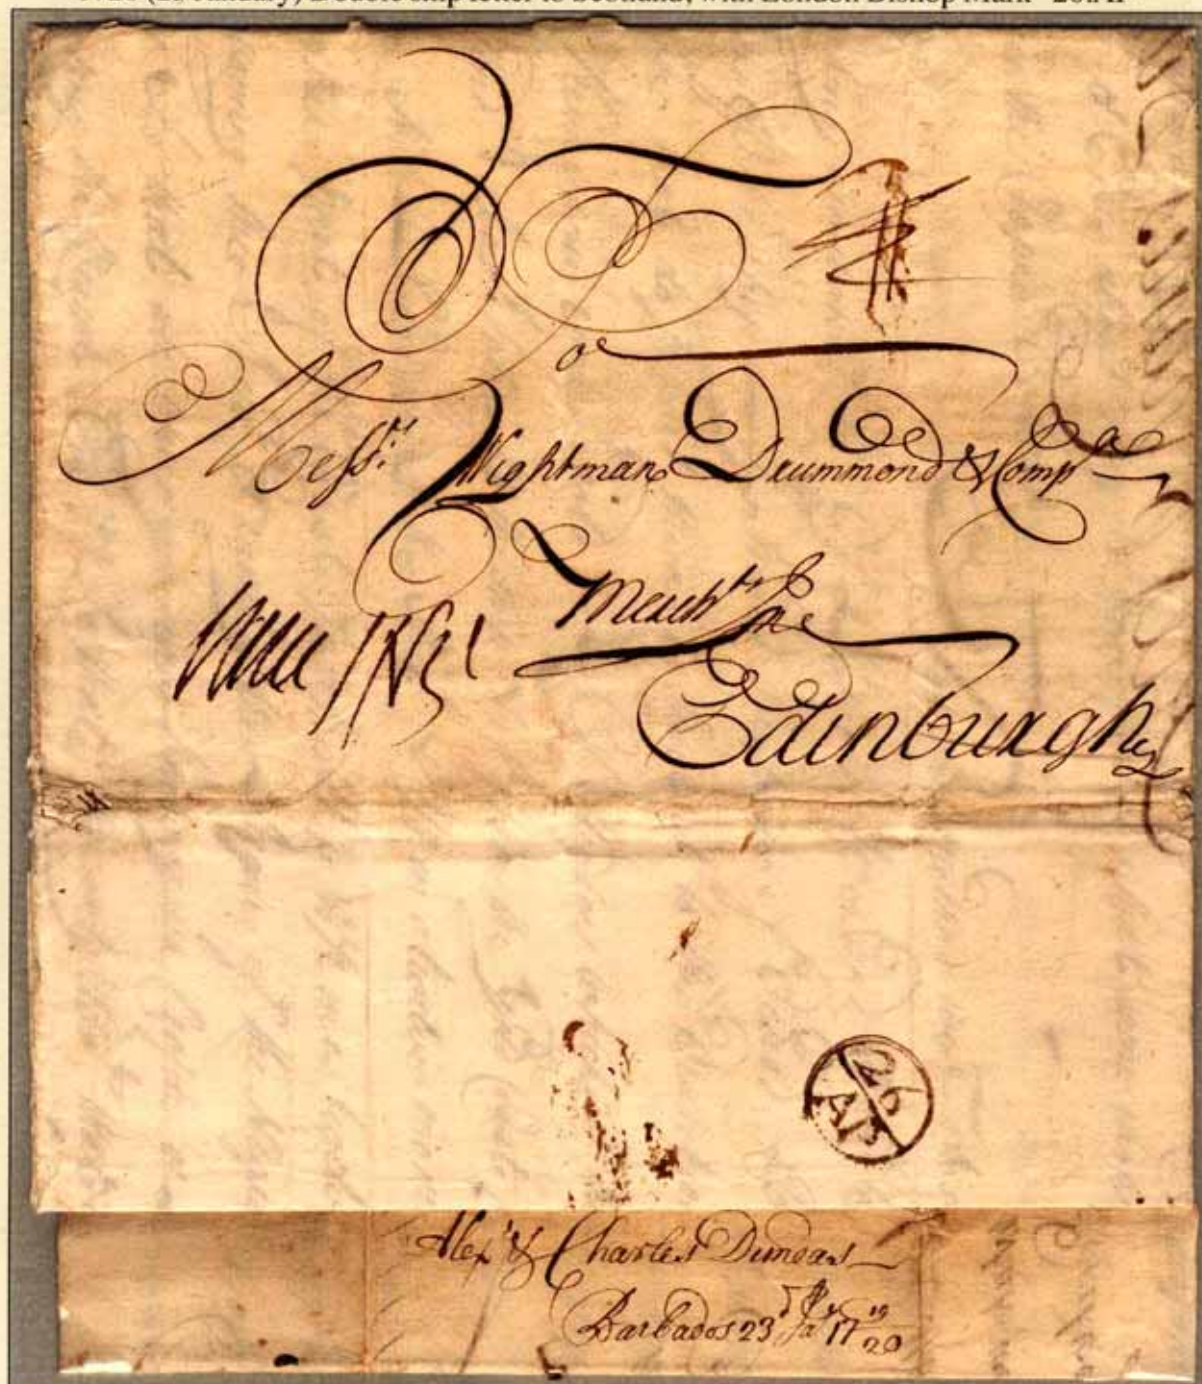 To
Messrs. Wightman Drummond & Compa
Mercht In
Edinburgh
26
AP
Alexr & Charles Dundas
Barbados 23d Jar 17 19/20